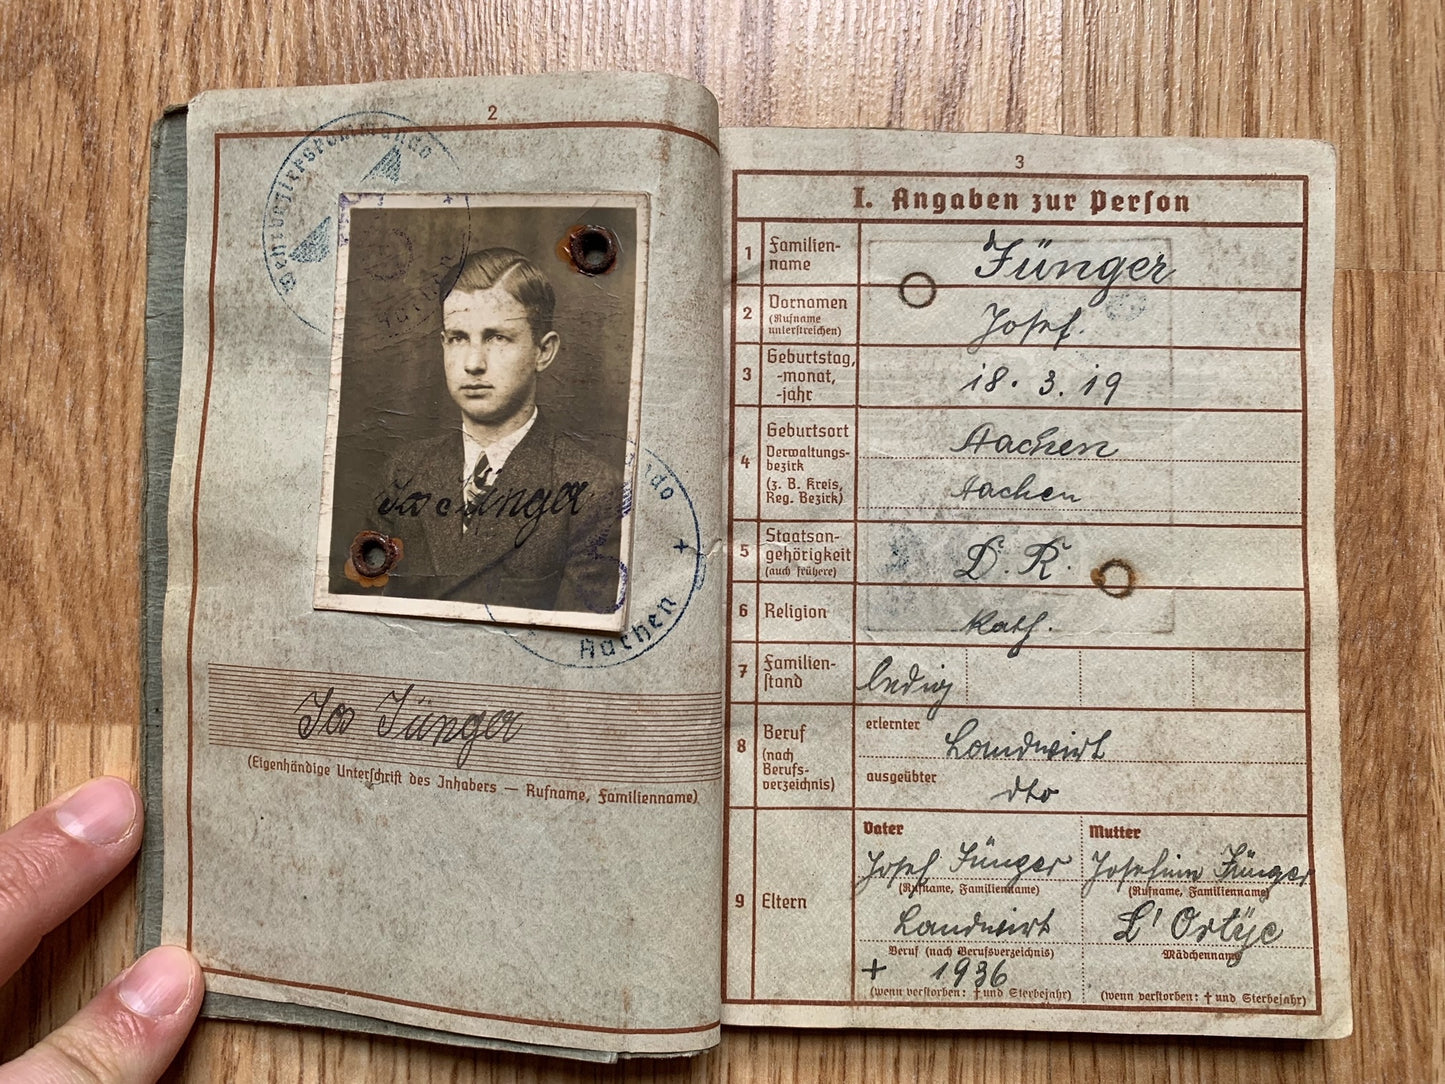 2
Wehrbezirkskommando
Aachen
Jos Jünger
Aachen
Jos Jünger
(Eigenhändige Unterschrift des Inhabers — Rufname, Familienname)
3
I. Angaben zur Person
1 Familien-
name
Jünger
2 Vornamen
(Rufname
unterstreichen)
Josef.
3 Geburtstag,
-monat,
-jahr
18. 3. 19
4 Geburtsort
Aachen
Verwaltungs-
bezirk
(z. B. Kreis,
Reg. Bezirk)
Aachen
5 Staatsan-
gehörigkeit
(auch frühere)
D. R.
6 Religion
kath.
7 Familien-
stand
ledig
8 Beruf
(nach
Berufs-
verzeichnis)
erlernter
Landwirt
ausgeübter
dto
9 Eltern
Vater
Josef Jünger
(Rufname, Familienname)
Landwirt
Beruf (nach Berufsverzeichnis)
+ 1936
(wenn verstorben: † und Sterbejahr)
Mutter
Josefine Jünger
(Rufname, Familienname)
L' Ortÿe
Mädchenname
(wenn verstorben: † und Sterbejahr)